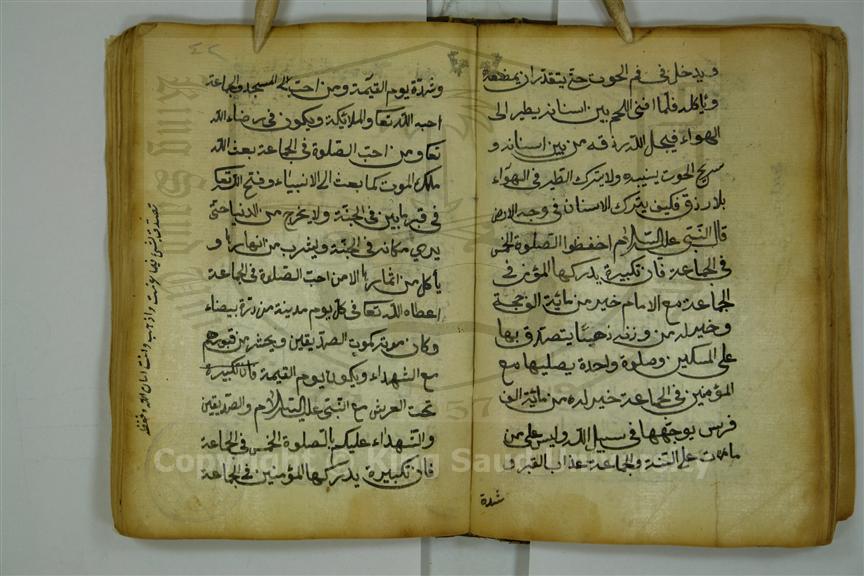 ويدخل في فم الحوت حتى يتقذر ان يمضغه
ويأكله فلما افنى اللحم بين اسنانه يطير الى
الهواء فيجعل الله رزقه من بين اسنانه و
الحوت ولا يترك الطير في الهواء
بلا رزق فكيف يترك الانسان في وجه الارض
قال النبي عليه السلام احفظوا الصلوة الخمس
في الجماعة فان تكبيرة يدركها المؤمن في
الجماعة مع الامام خير من مائة الف حجة
وخير له من وزنه ذهبا يتصدق بها
على المسكين وصلوة واحدة يصليها مع
المؤمنين في الجماعة خير له من مائة الف
فرس يوجهها في سبيل الله وليس على من
مات على السنة والجماعة عذاب القبر و
شدة
وشدة يوم القيمة ومن احب الى المسجد والجماعة
احبه الله تعا والملائكة ويكون في رضاء الله
تعا ومن احب الصلوة في الجماعة بعث الله
ملك الموت كما بعث الى الانبياء وفتح الله تعا
في قبره بابين في الجنة ولا يخرج من الدنيا حتى
يرى مكانه في الجنة ويشرب من انهارها و
يأكل من اثمارها الا من احب الصلوة في الجماعة
اعطاه الله تعا في كل يوم مدينة من درة بيضاء
وكان موته كموت الصديقين ويحشر من قبورهم
مع الشهداء ويكون يوم القيمة
تحت العرش مع النبي عليه السلام والصديقين
والشهداء عليكم بالصلوة الخمس في الجماعة
فان تكبيرة يدركها المؤمنين في الجماعة
Copyright © King Saud University
King Saud
1957